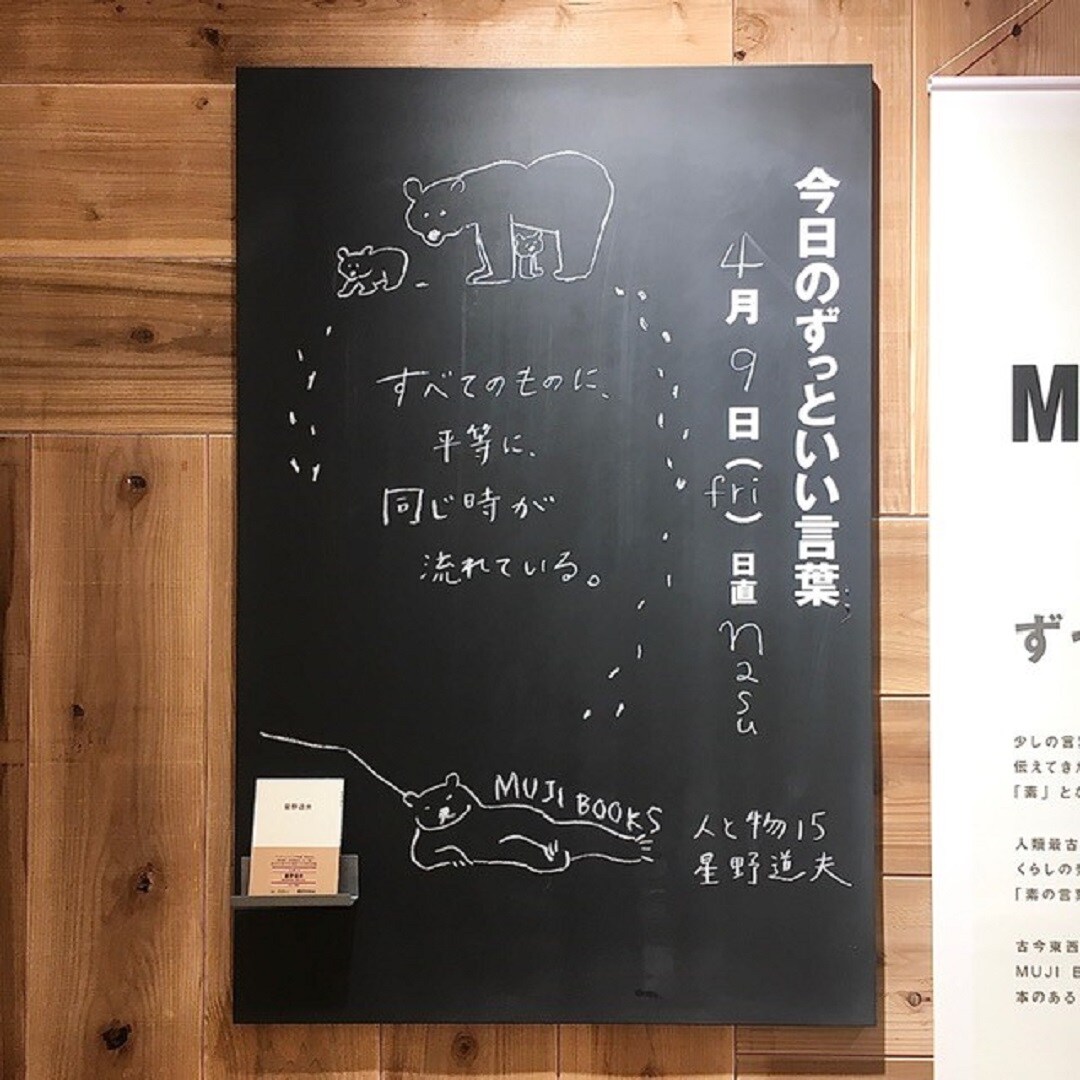 今日のずっといい言葉
4月9日(fri) 日直 nasu
すべてのものに、
平等に、
同じ時が
流れている。
MUJI BOOKS
人と物15
星野道夫
星野道夫
M
ず
少しの言
伝えてき
「素」と
人類最古
くらしの
「素の言
古今東西
MUJI B
本のある